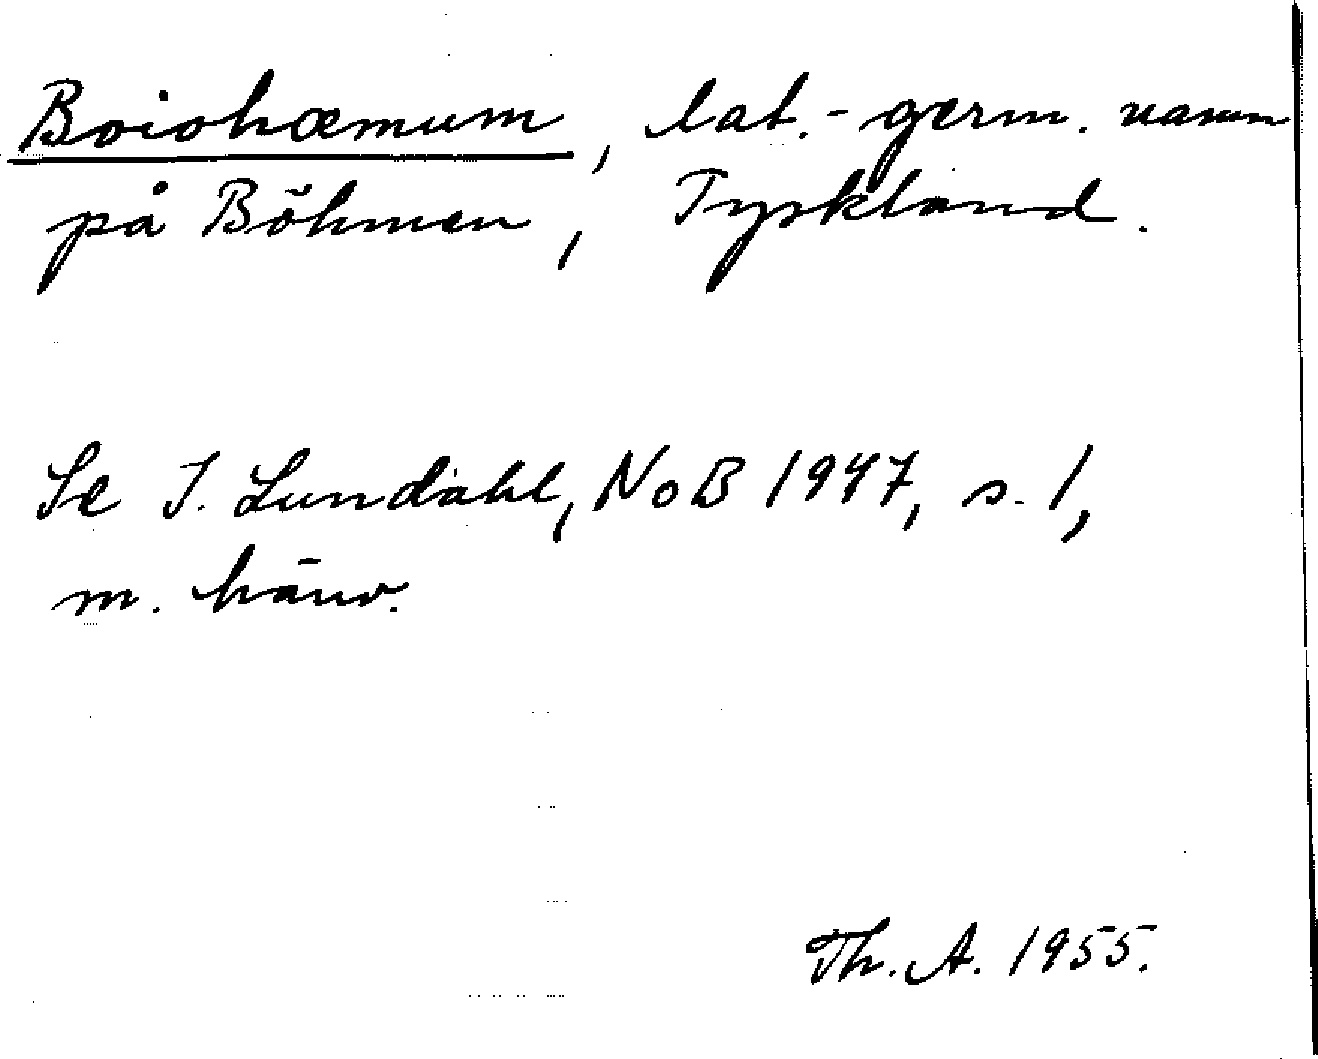 Boiohæmum, lat.-germ. namn
på Böhmen, Tyskland.
Se I. Lundahl, NoB 1947, s. 1,
m. hänv.
Th. A. 1955.